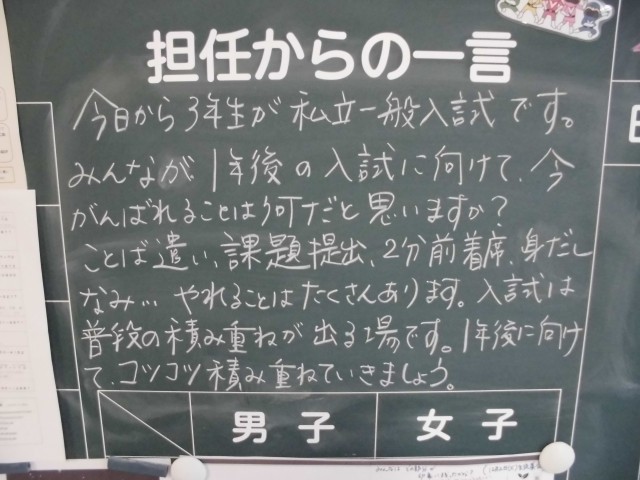 担任からの一言
今日から3年生が私立一般入試です。
みんなが1年後の入試に向けて、今
がんばれることは何だと思いますか?
ことば遣い、課題提出、2分前着席、身だし
なみ… やれることはたくさんあります。入試は
普段の積み重ねが出る場です。1年後に向け
て、コツコツ積み重ねていきましょう。
男子 女子